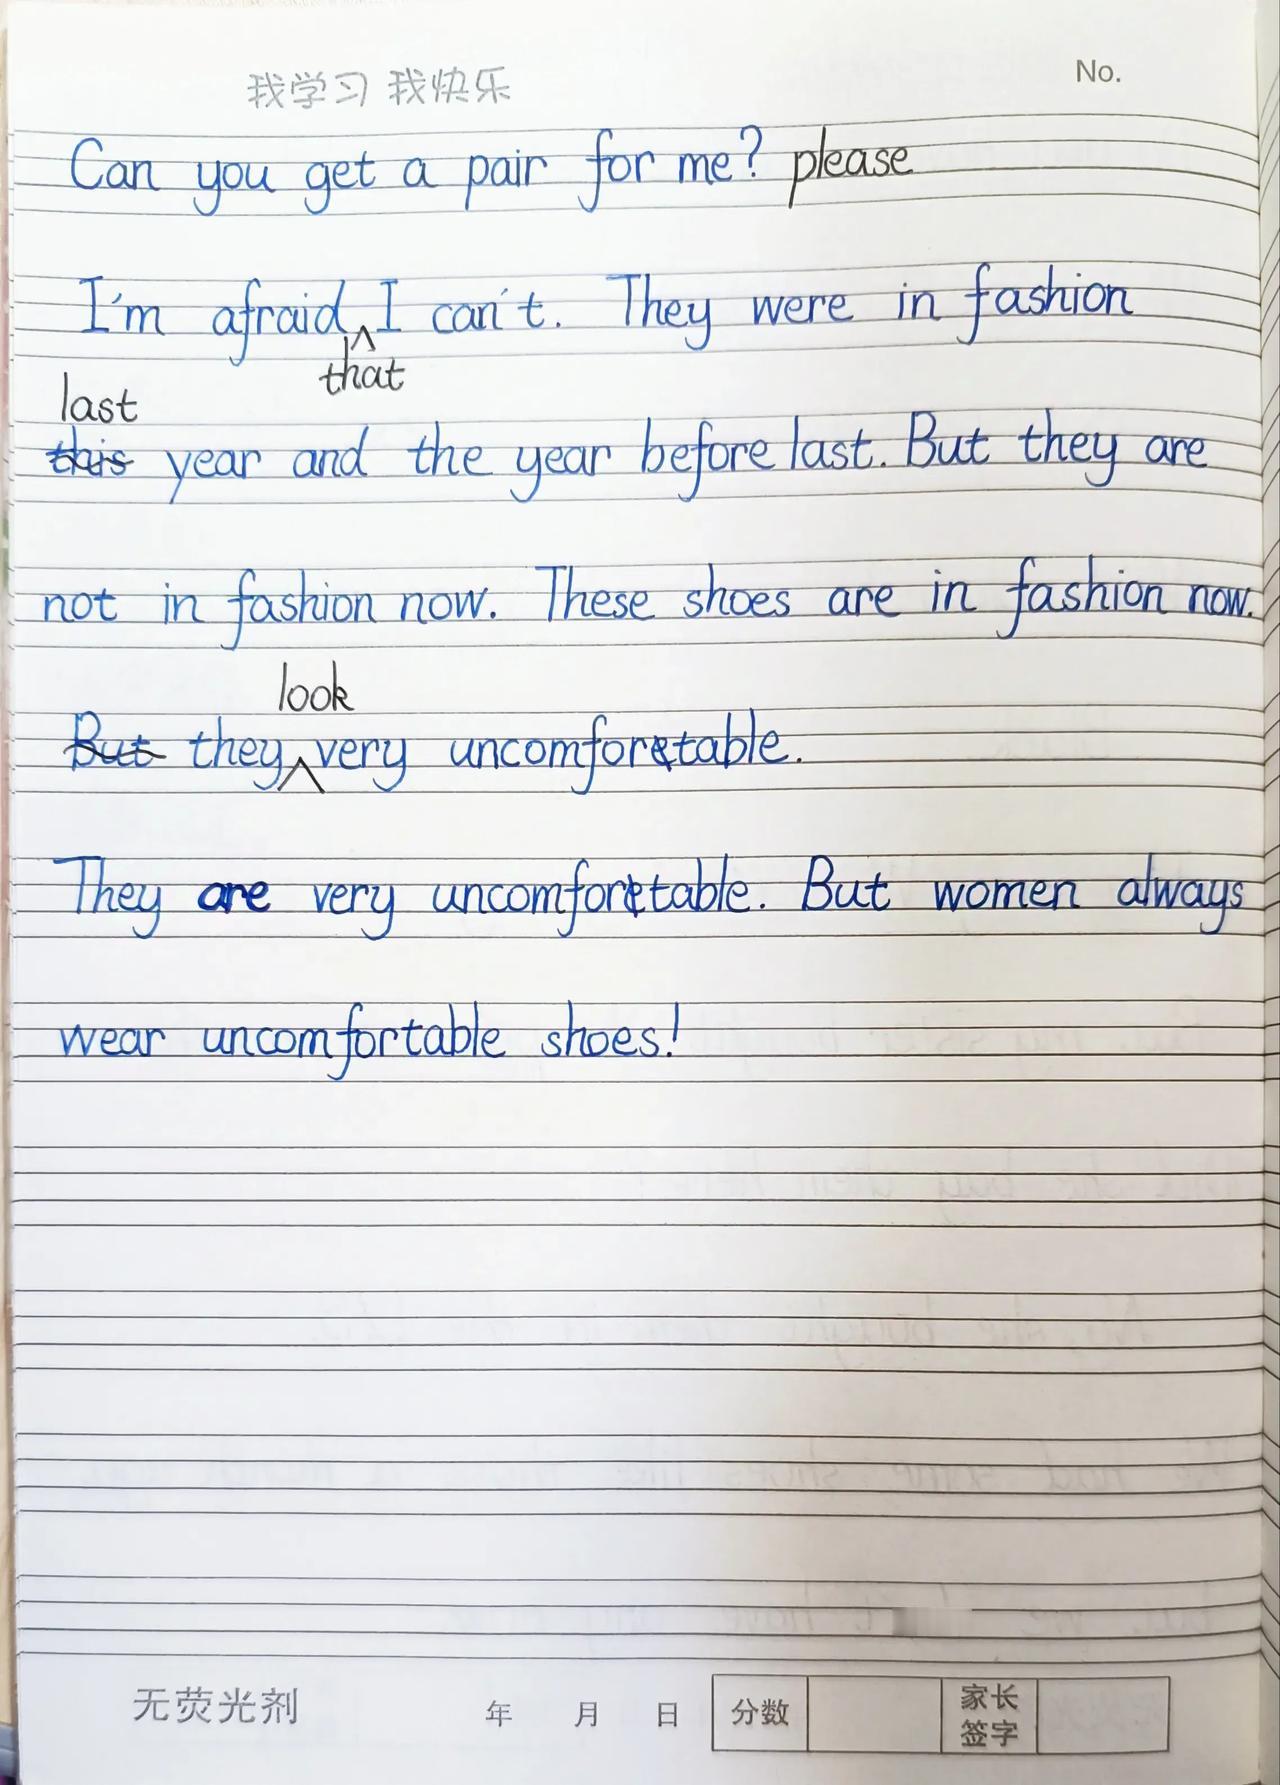 我学习 我快乐 No.
Can you get a pair for me? please
I'm afraid I can't. They were in fashion
that
last
this year and the year before last. But they are
not in fashion now. These shoes are in fashion now.
look
But they very uncomfortable.
They are very uncomfortable. But women always
wear uncomfortable shoes!
无荧光剂 年 月 日 分数 家长签字